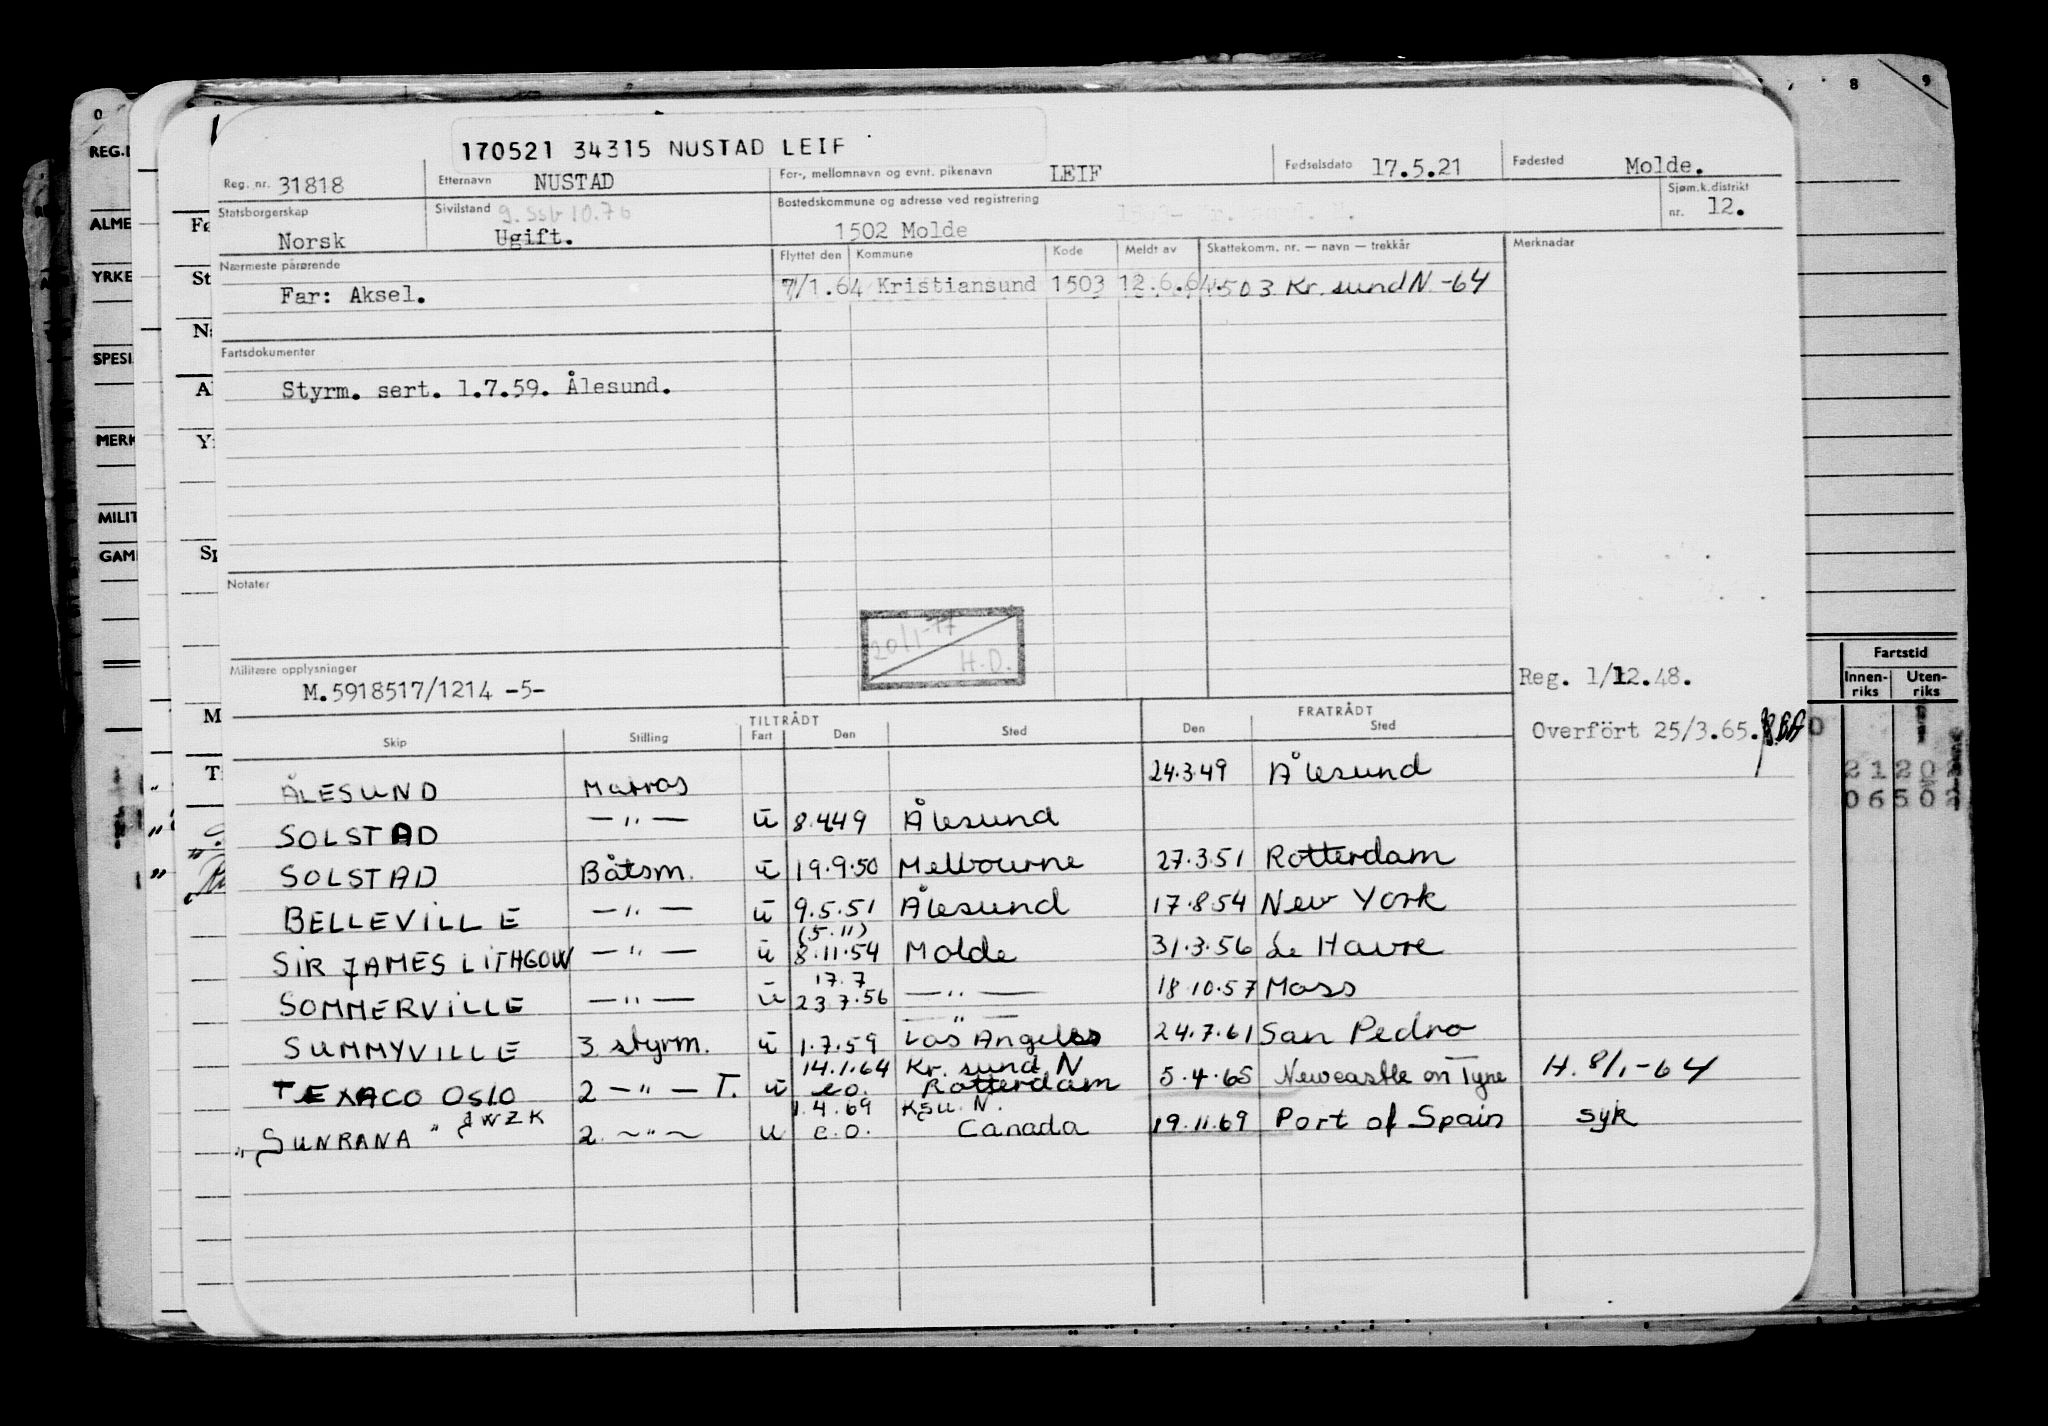 170521 34315 NUSTAD LEIF
Reg. nr. 31818 Etternavn NUSTAD For-, mellomnavn og evnt. pikenavn LEIF Fødselsdato 17.5.21 Fødested Molde.
Statsborgerskap Norsk Sivilstand g. Ssb 10.76 Ugift. Bostedskommune og adresse ved registrering 1502 Molde Sjøm.k.distrikt nr. 12.
Nærmeste pårørende Flyttet den Kommune Kode Meldt av Skattekomm. nr. — navn — trekkår Merknader
Far: Aksel. 7/1.64 Kristiansund 1503 12.6.64. 1503 Kr.sund N. -64
Fartsdokumenter
Styrm. sert. 1.7.59. Ålesund.
Notater
20/1-77
H.D.
Militære opplysninger
M.5918517/1214 -5-
Reg. 1/12.48.
Overført 25/3.65.
TILTRÅDT FRATRÅDT
Skip Stilling Fart Den Sted Den Sted
ÅLESUND Matros 24.3.49 Ålesund
SOLSTAD —"— u 8.4.49 Ålesund
SOLSTAD Båtsm. u 19.9.50 Melbourne 27.3.51 Rotterdam
BELLEVILLE —"— u 9.5.51 Ålesund 17.8.54 New York
(5.11)
SIR JAMES LITHGOW —"— u 8.11.54 Molde 31.3.56 Le Havre
17.7
SOMMERVILLE —"— u 23.7.56 —"— 18.10.57 Moss
—"—
SUMMYVILLE 3 styrm. u 1.7.59 Los Angeles 24.7.61 San Pedro
14.1.64 Kr. sund N
TEXACO OSLO 2 —"— T. u e.o. Rotterdam 5.4.65 Newcastle on Tyne H. 8/1-64
1.4.69 Ksu. N.
"SUNRANA" JWZK 2. —"— u e.o. Canada 19.11.69 Port of Spain syk
0
REG.
ALME
YRKE
SPESI
MERK
MILIT
GAM
8 9
Fartstid
Innen-riks Uten-riks